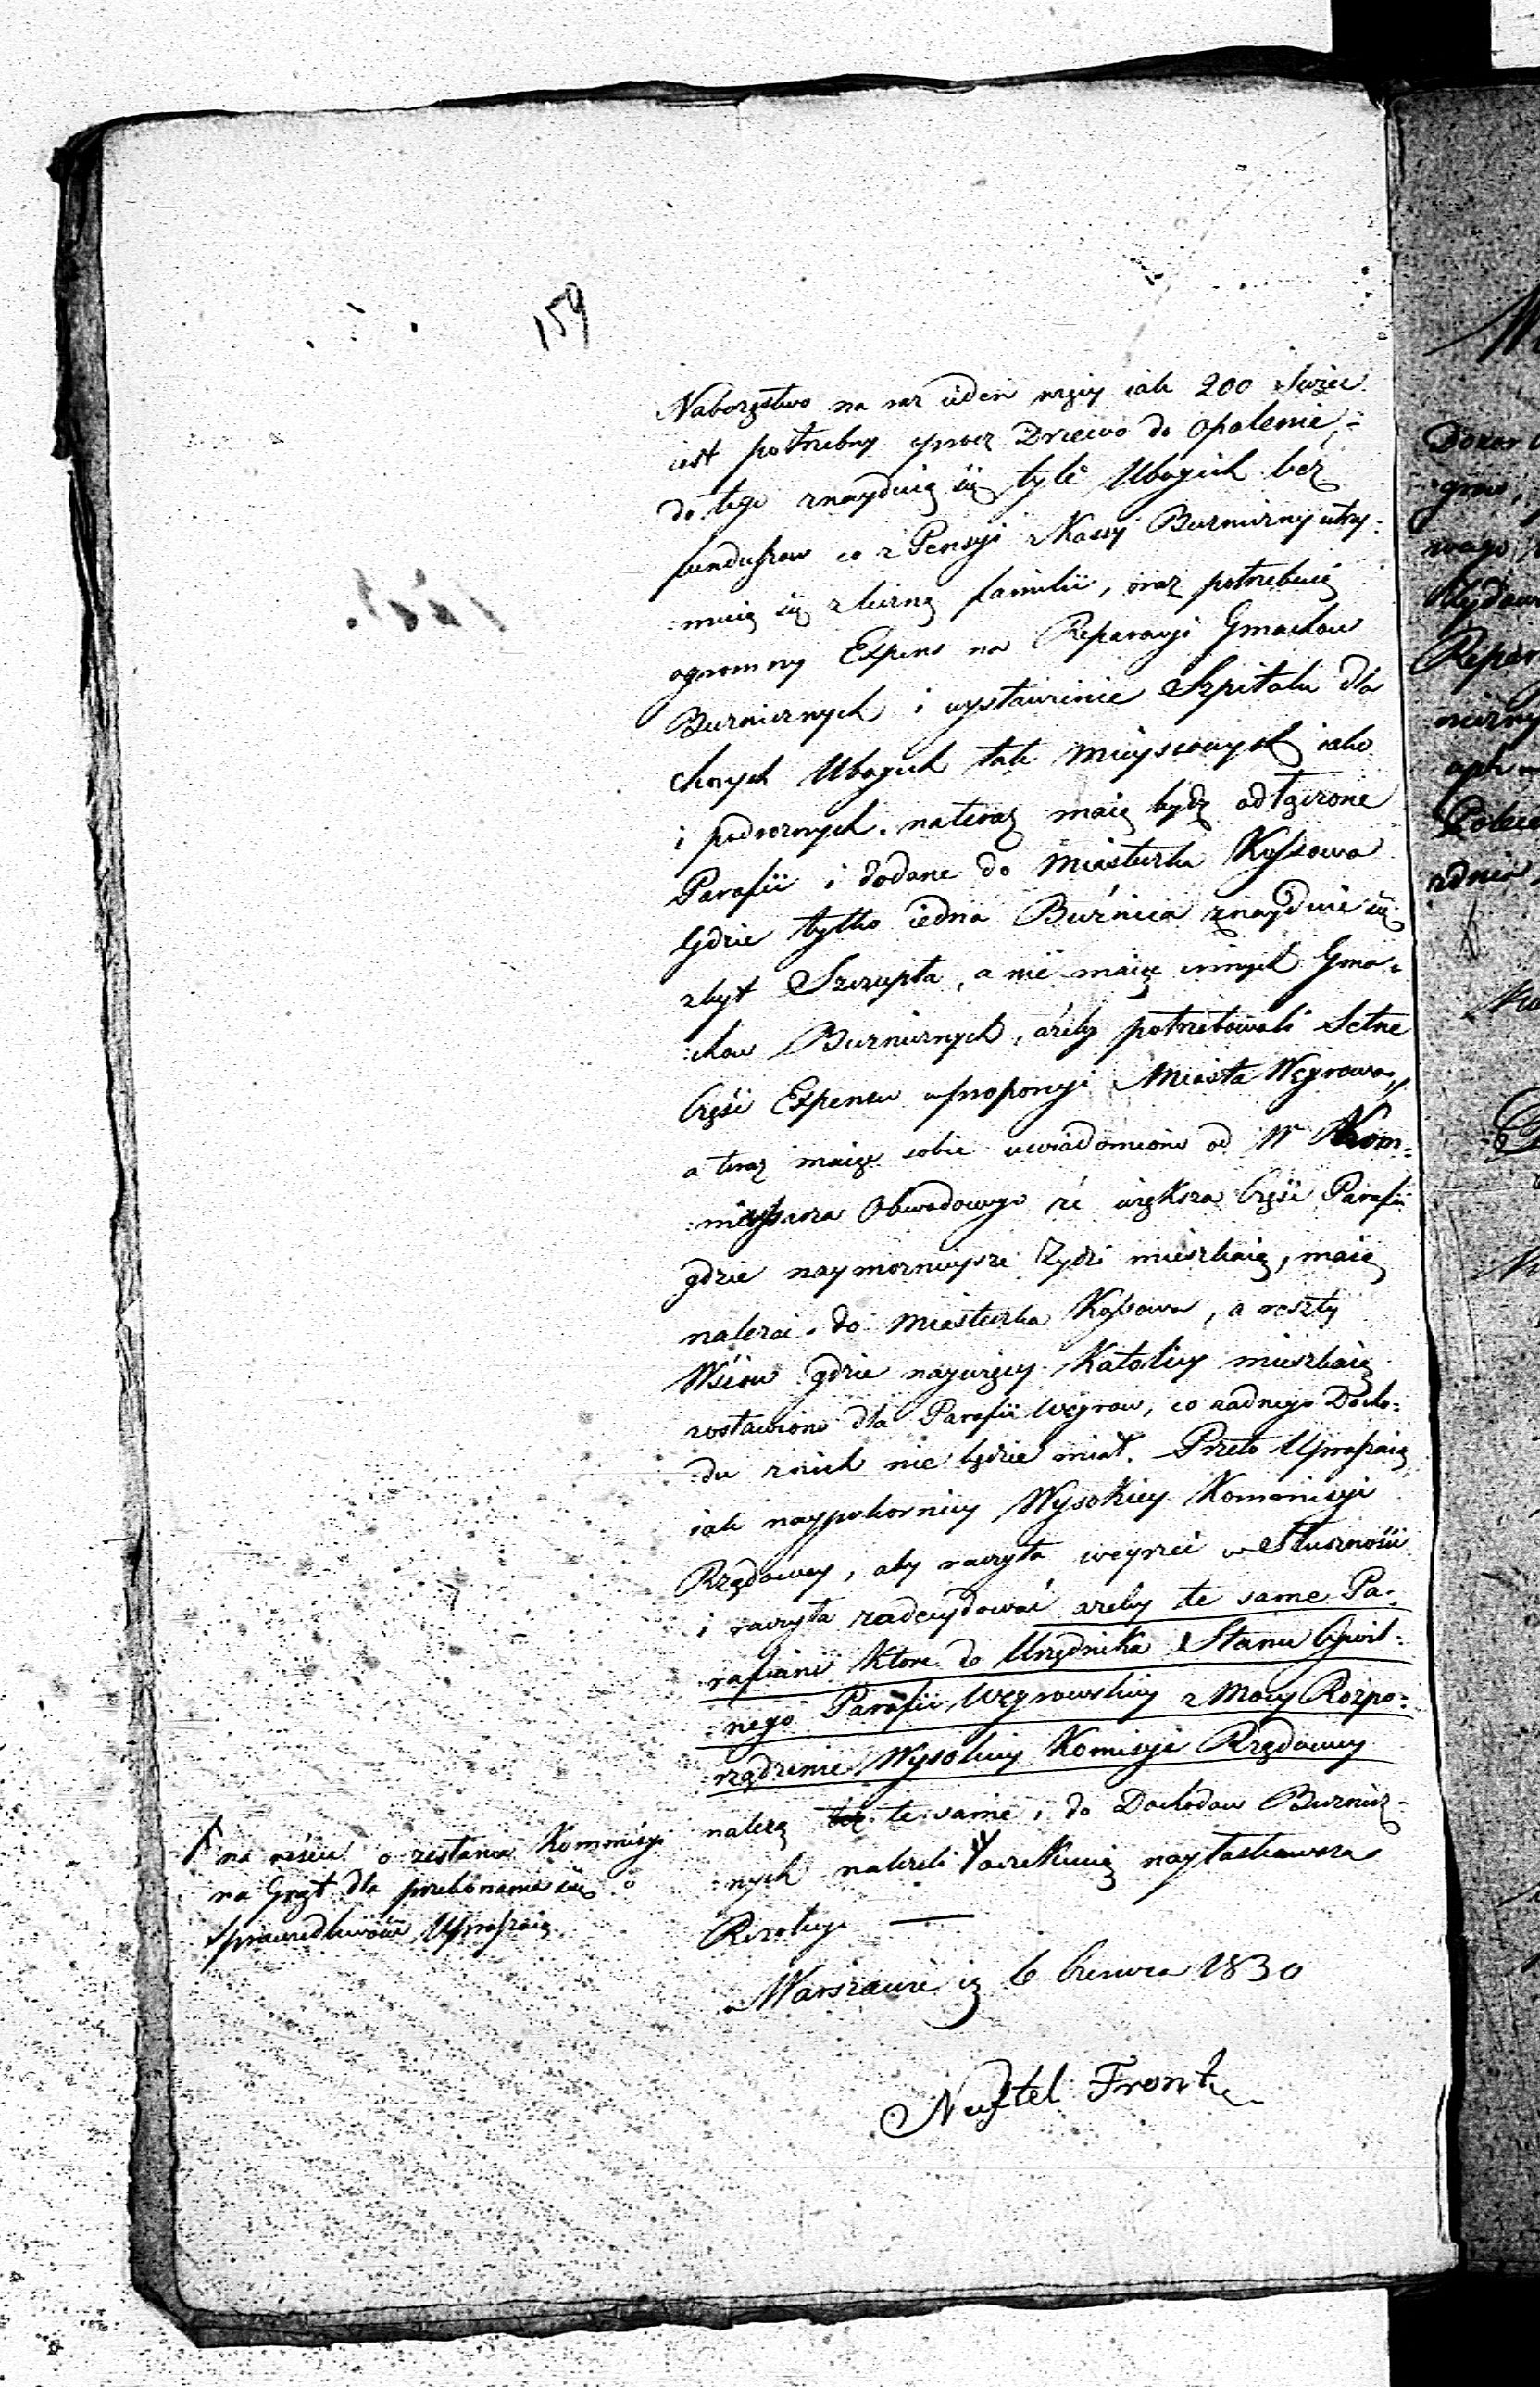 159
Naborzstwo na raz ieden więcy iak 200 Swiec
iest potrzebny oprocz Drzewo do opalenie,=
do tego znayduią się tyle Ubogich bez
funduszow co z Pensyi z Kassy Buzniczny utrzy=
=muią się z liczną familii, oraz potrzebuią
ogromny Expens na Reparacyi Gmachow
Buznicznych i wystawienie Szpitalu dla
chorych Ubogich tak mieyscowych iako
i podroznych. nateraz maią bydz odłączone
Parafii i dodane do Miasteczka Kossowa
Gdzie tylko iedna Buźnica znayduie się
zbyt Szczupła, a nie maiąc innych Gma=
=chow Buznicznych, ażeby potrzebowali Setne
Części Expensu w proporcyi Miasta Węgrowa,
a teraz maiąc sobie uwiadomione od W Kom=
=missarza Obwodowego że większa Część Parafii
gdzie naymożnieysze Zydzi mieszkaią, maią
należeć do Miasteczka Kossowa, a reszty
Wsiow gdzie naywięcy Katolicy mieszkaią
zostawiono dla Parafii Węgrow, co zadnego Docho=
=du znich nie będzie miał. Przeto Upraszaią
iak naypokorniey Wysokiey Kommissyi
Rządowey, aby raczyła weyrzeć w Słuszności
i raczyła zadecydować azeby te same Pa=
rafianie ktore do Urzędnika Stanu Cywil=
=nego Parafii Węgrowskiey z Mocy Rozpo=
rządzenie Wysokiey Komisyi Rządowey
należą te same i do Dochodow Buznicz=
=nych należeli oczekuią nayłaskawsza
Rezolucyi
w Warszawie dn 6 Czerwca 1830
Neyftel Front
na Grąt dla przekonania się o
Sprawiedliwości, Upraszaią